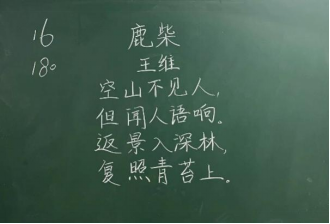 16
180
鹿柴
王维
空山不见人,
但闻人语响。
返景入深林,
复照青苔上。